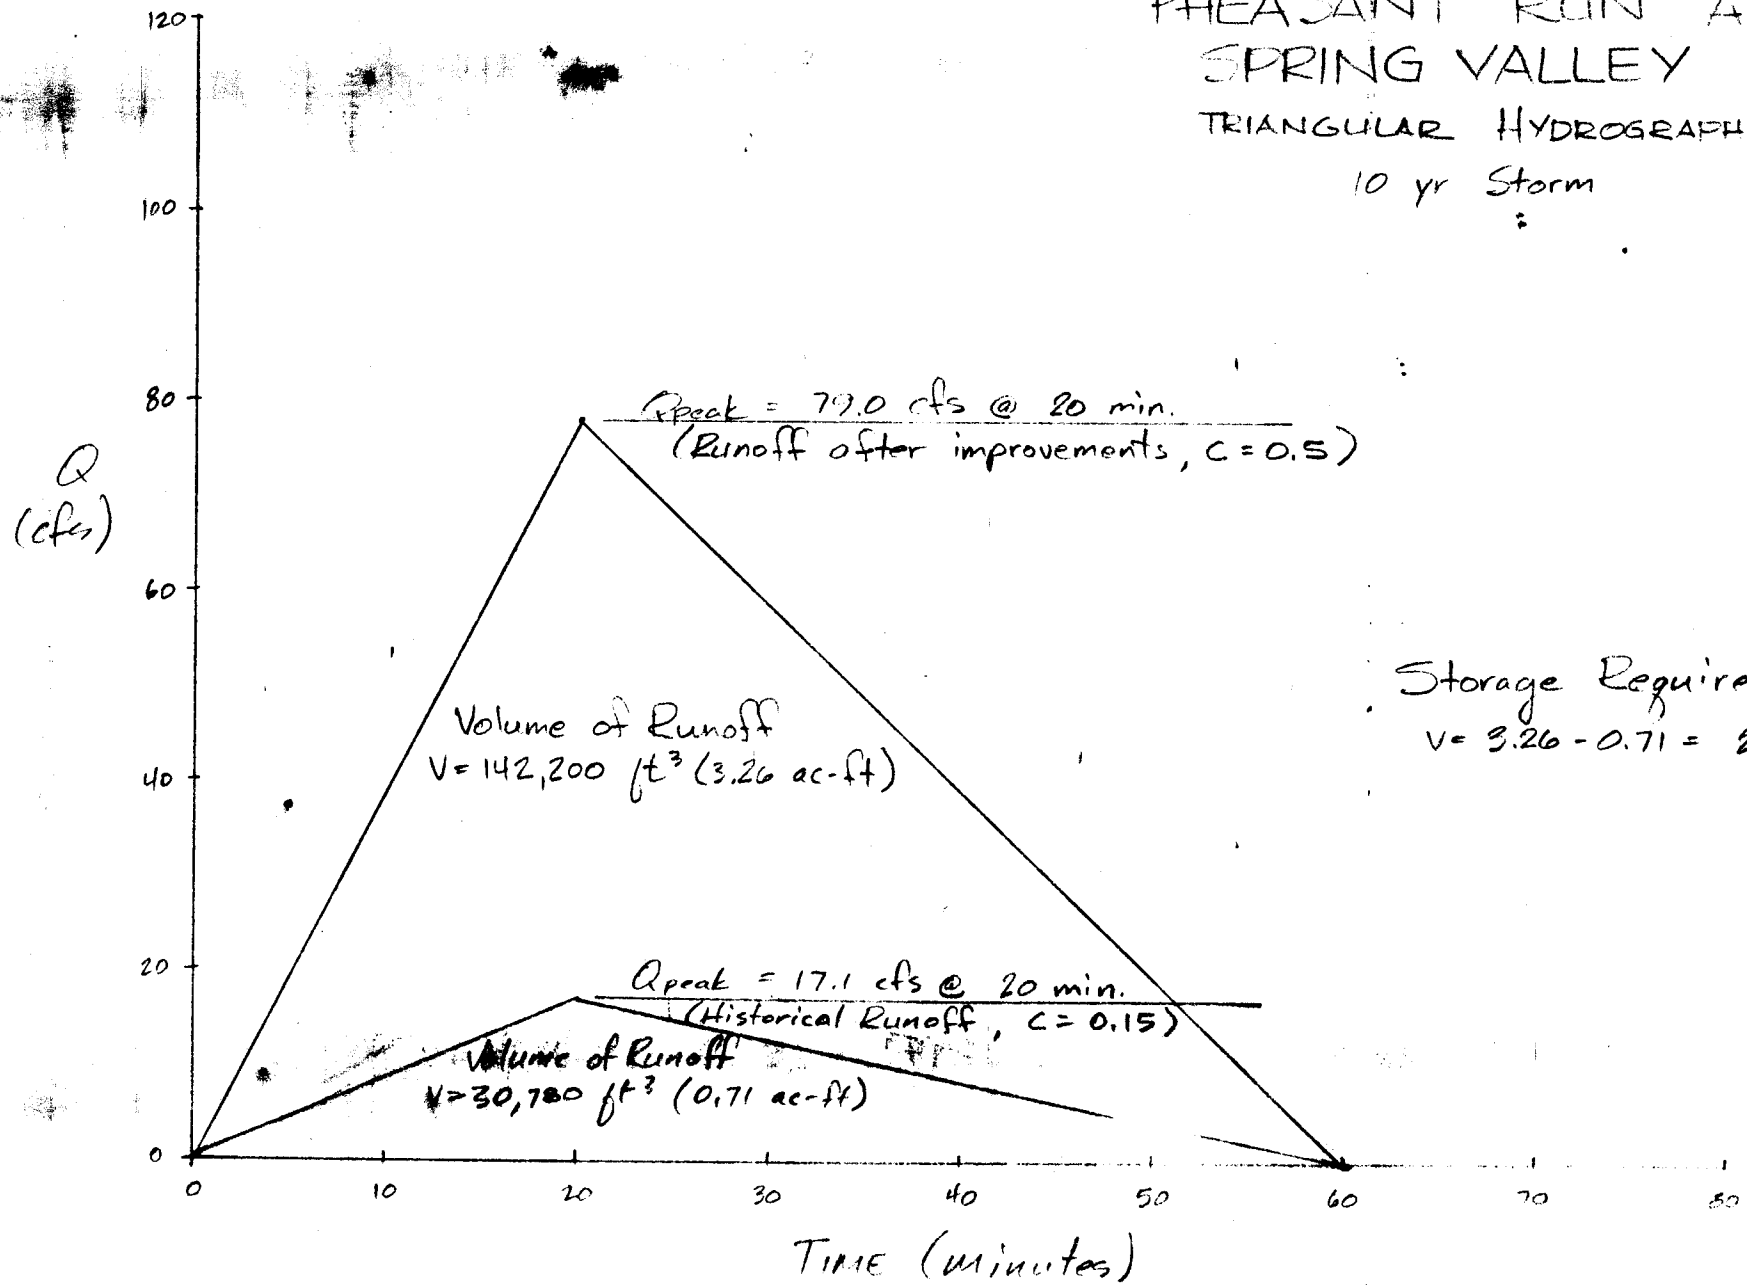 PHEASANT RUN A
SPRING VALLEY
TRIANGULAR HYDROGRAPH
10 yr Storm
120
100
80
60
40
20
0
Q
(cfs)
Qpeak = 79.0 cfs @ 20 min.
(Runoff after improvements, C = 0.5)
Volume of Runoff
V = 142,200 ft³ (3.26 ac-ft)
Storage Require
V = 3.26 - 0.71 = 2
Qpeak = 17.1 cfs @ 20 min.
(Historical Runoff, C = 0.15)
Volume of Runoff
V = 30,780 ft³ (0.71 ac-ft)
0 10 20 30 40 50 60 70 80
TIME (minutes)